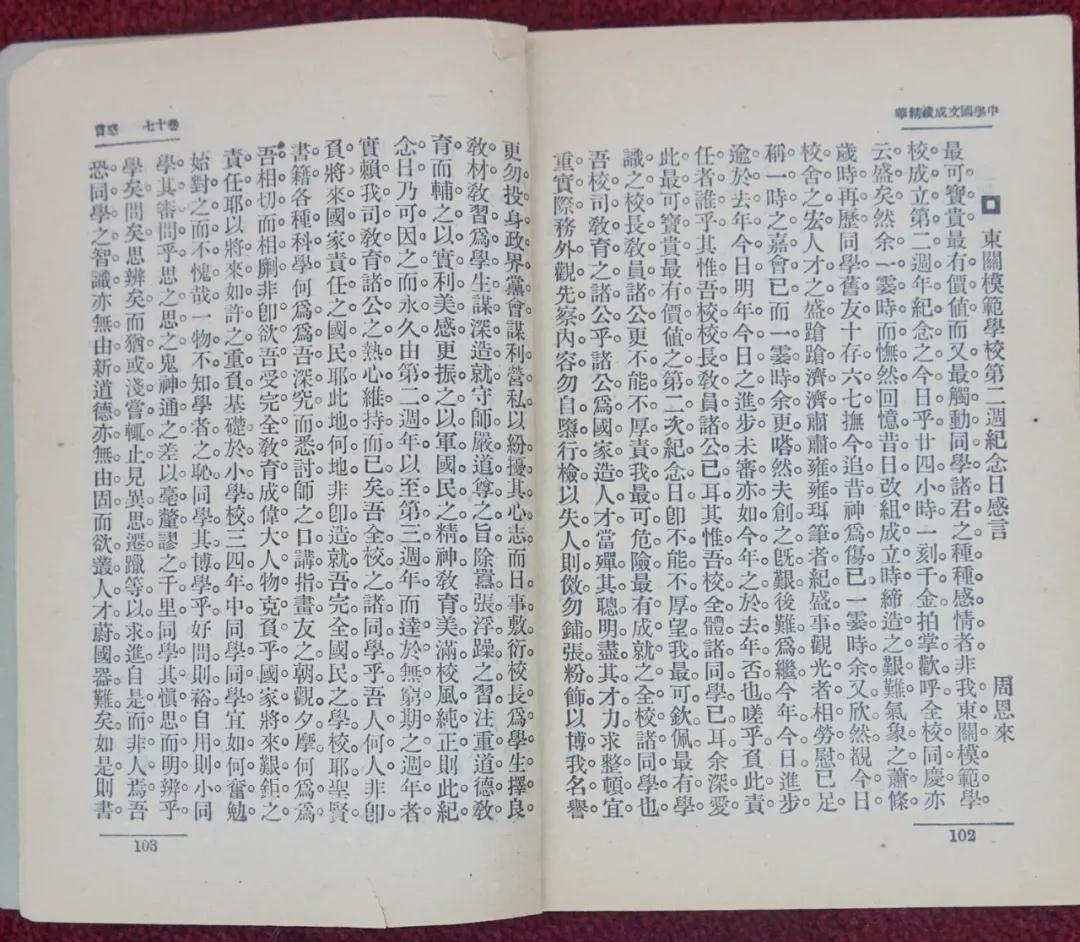 中學國文成績精華
東關模範學校第二週紀念日感言
周恩來
最可寶貴最有價值而又最觸動同學諸君之種種感情者非我東關模範學
校成立第二週年紀念之今日乎廿四小時一刻千金拍掌歡呼全校同慶亦
云盛矣然余一霎時而憮然回憶昔日改組成立時締造之艱難氣象之蕭條
歲時再歷同學舊友十存六七撫今追昔神爲傷已一霎時余又欣然覩今日
校舍之宏人才之盛蹌蹌濟濟肅肅雍雍珥筆者紀盛事觀光者相勞慰已足
稱一時之嘉會已而一霎時余更嗒然夫創之旣艱後難爲繼今年今日進步
逾於去年今日明年今日之進步未審亦如今年之於去年否也嗟乎負此責
任者誰乎其惟吾校校長敎員諸公已耳其惟吾校全體諸同學已耳余深愛
此最可寶貴最有價值之第二次紀念日卽不能不厚望我最可欽佩最有學
識之校長敎員諸公更不能不厚責我最可危險最有成就之全校諸同學也
吾校司敎育之諸公乎諸公爲國家造人才當殫其聰明盡其才力求整頓宜
重實際務外觀先察內容勿自隳行檢以失人則傚勿鋪張粉飾以博我名譽
102
卷十七 感言
更勿投身政界黨會謀利營私以紛擾其心志而日事敷衍校長爲學生擇良
敎材敎習爲學生謀深造就守師嚴道尊之旨除囂張浮躁之習注重道德敎
育而輔之以實利美感更振之以軍國民之精神敎育美滿校風純正則此紀
念日乃可因之而永久由第二週年以至第三週年而達於無窮期之週年者
實賴我司敎育諸公之熱心維持而已矣吾全校之諸同學乎吾人何人非卽
負將來國家責任之國民耶此地何地非卽造就吾完全國民之學校耶聖賢
書籍各種科學何爲爲吾深究而悉討師之口講指畫友之朝觀夕摩何爲爲
吾相切而相劘非卽欲吾受完全敎育成偉大人物克負乎國家將來艱鉅之
責任耶以將來如許之重負基礎於小學校三四年中同學同學宜如何奮勉
始對之而不愧哉一物不知學者之恥同學其博學乎好問則裕自用則小同
學其審問乎思之思之鬼神通之差以毫釐謬之千里同學其愼思而明辨乎
學矣問矣思辨矣而猶或淺嘗輒止見異思遷躐等以求進自是而非人焉吾
恐同學之智識亦無由新道德亦無由固而欲叢人才蔚國器難矣如是則書
103